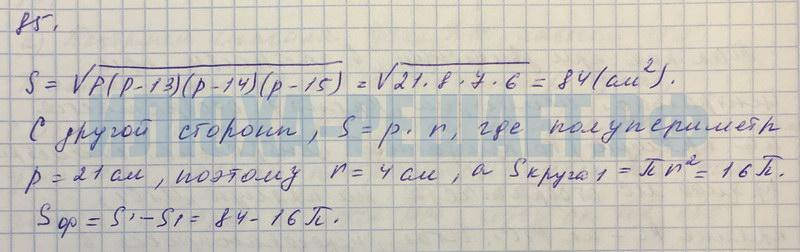 85.
S = √p(p-13)(p-14)(p-15) = √21·8·7·6 = 84(см²).
С другой сторонп, S = p·r, где полупериметр
p = 21 см, поэтому r = 4 см, а Sкруга1 = πr² = 16π.
Sф = S' - S1 = 84 - 16π.